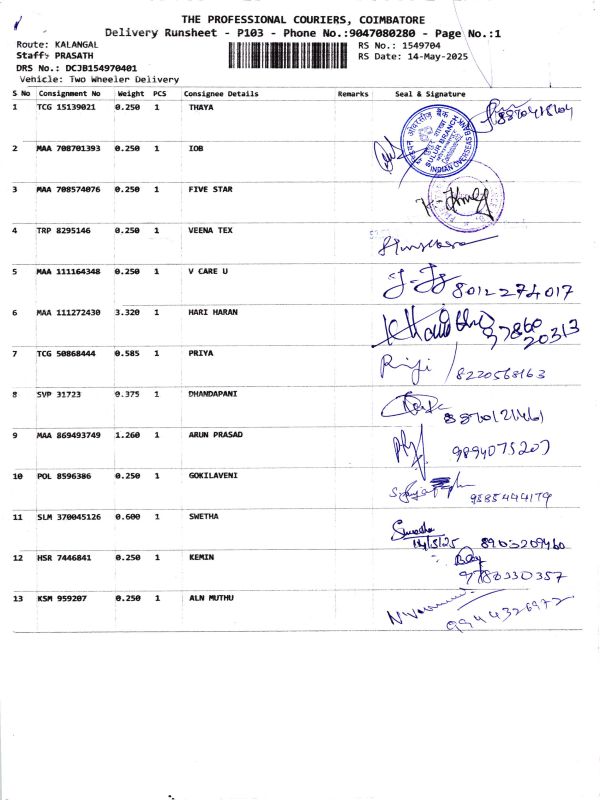 THE PROFESSIONAL COURIERS, COIMBATORE
Delivery Runsheet - P103 - Phone No.:9047080280 - Page No.:1
Route: KALANGAL
Staff: PRASATH
DRS No.: DCJB154970401
Vehicle: Two Wheeler Delivery
RS No.: 1549704
RS Date: 14-May-2025
S No Consignment No Weight PCS Consignee Details Remarks Seal & Signature
1 TCG 15139021 0.250 1 THAYA
2 MAA 708701393 0.250 1 IOB
SULUR BRANCH
INDIAN OVERSEAS BANK
3 MAA 708574076 0.250 1 FIVE STAR
4 TRP 8295146 0.250 1 VEENA TEX
5 MAA 111164348 0.250 1 V CARE U
8012274017
6 MAA 111272430 3.320 1 HARI HARAN
37860
20313
7 TCG 50868444 0.585 1 PRIYA
8220568163
8 SVP 31723 0.375 1 DHANDAPANI
8870121461
9 MAA 869493749 1.260 1 ARUN PRASAD
9894075207
10 POL 8596386 0.250 1 GOKILAVENI
9585444179
11 SLM 370045126 0.600 1 SWETHA
14/5/25 8903209460
12 HSR 7446841 0.250 1 KEMIN
9788330357
13 KSM 959207 0.250 1 ALN MUTHU
9944326972